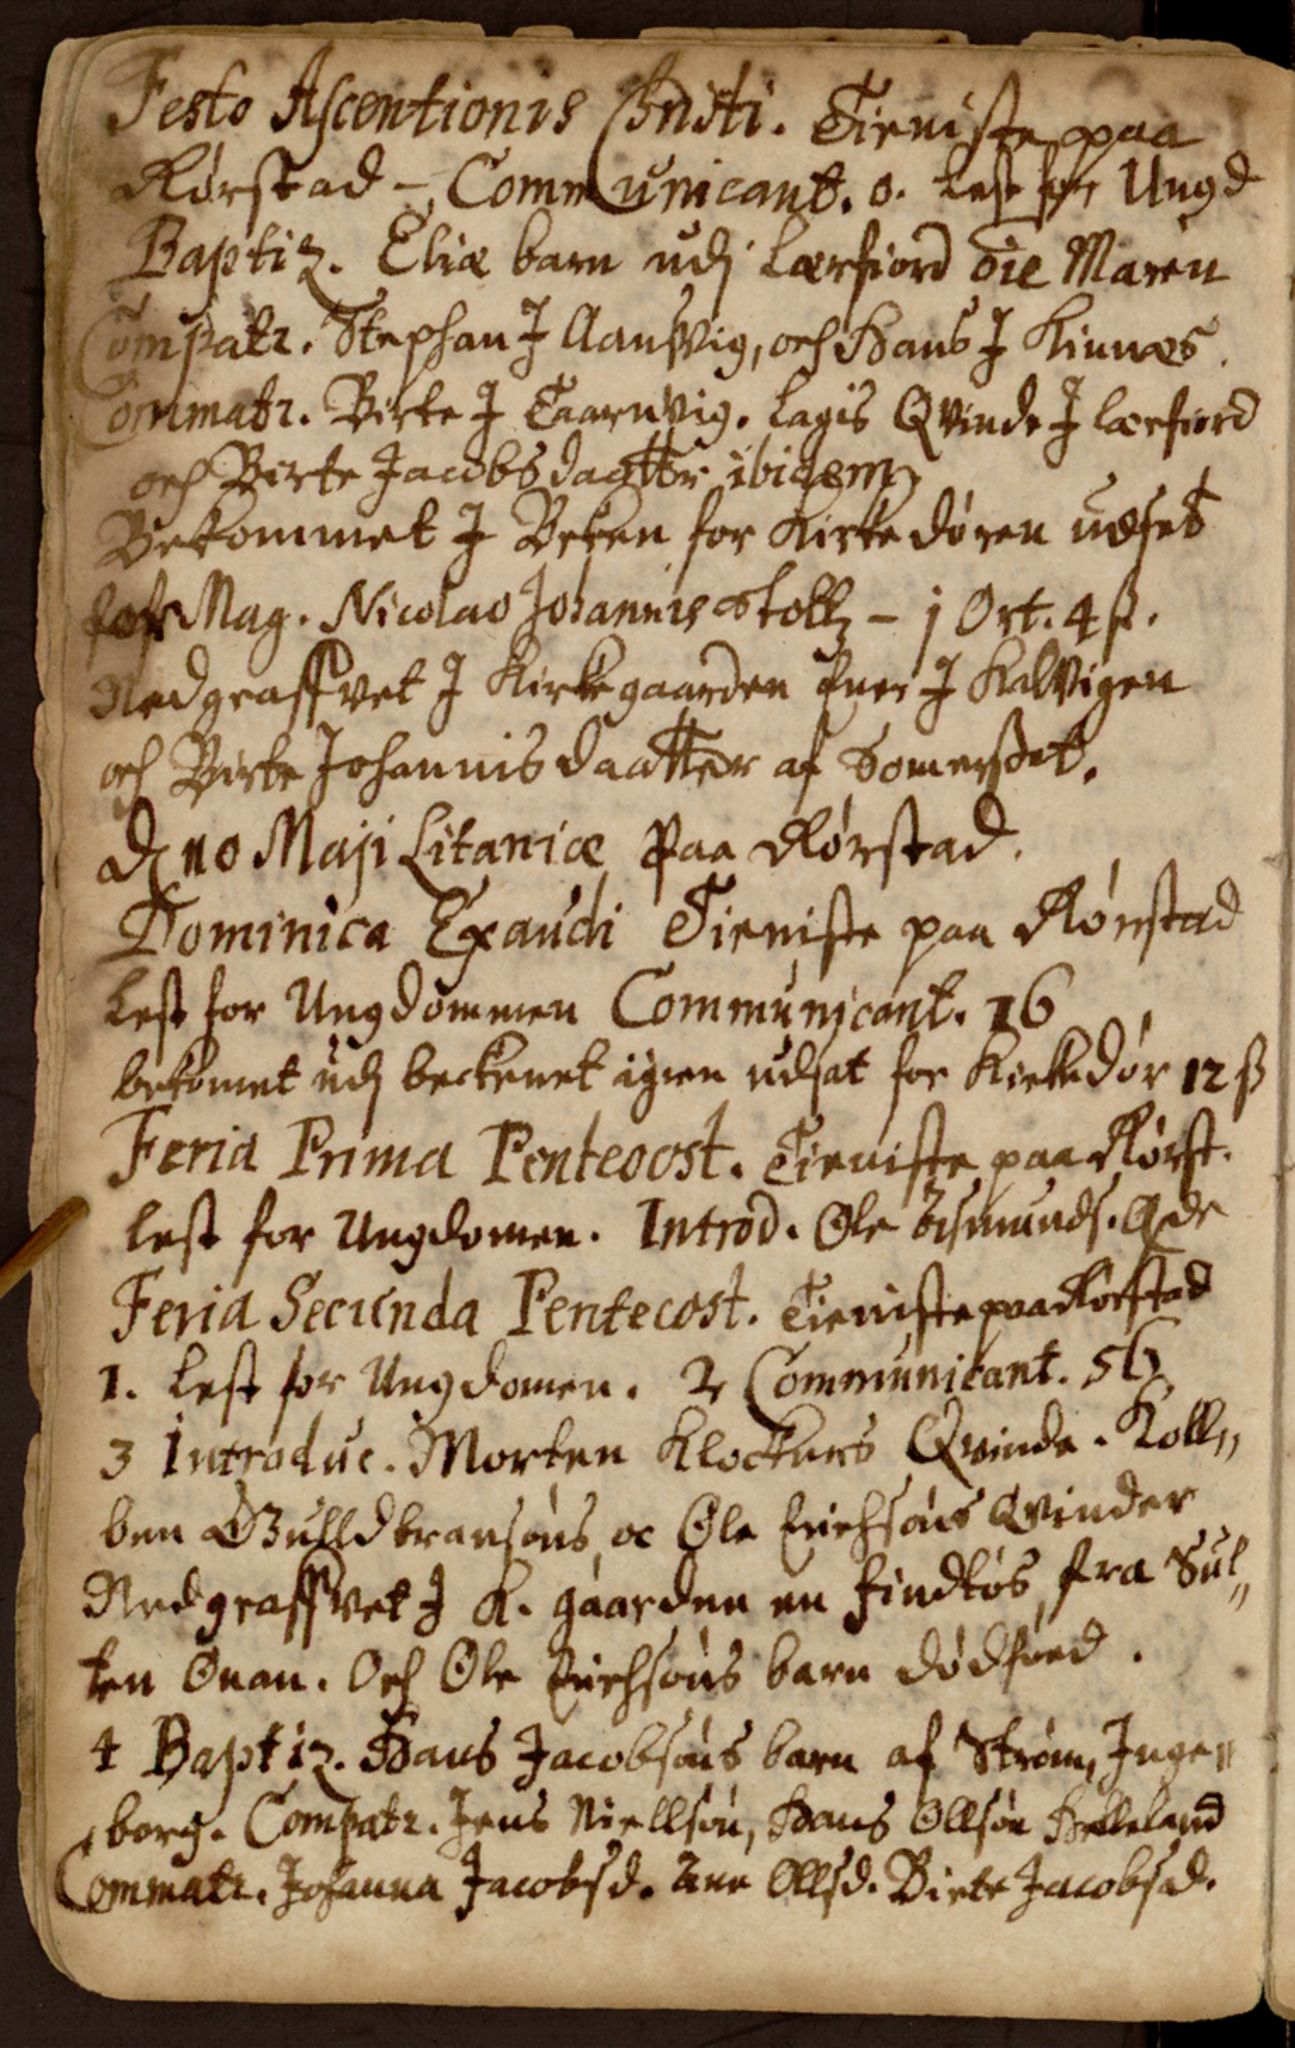 Festo Ascentionis Christi. Tieniste paa
Rørstad - Communicant. 0. Lest for Ungd
Baptiz. Eliæ barn udj Lærfiord die Maren
Compatr. Stephan J Aansvig, och Hans J Kinnes.
Commatr. Birte J Taarnvig. Lagis Qvinde J lærfiord
och Birte Jacobsdaatter ibidem,
Bekommet J Beken for Kirkedøren udset
for Mag. Nicolao Johannis Stollz - j Ort. 4 ß.
Nedgraffvet J Kirkegaarden J Kalvigen
och Birte Johannisdaatter af Somerset.
D 10 Maji Litaniæ paa Rørstad.
Dominica Exaudi Tieniste paa Rørstad
Lest for Ungdommen Communicant. 16
bekomet udj beckenet igien udsat for Kirkedør 12 ß
Feria Prima Pentecost. Tieniste paa Rørst.
lest for Ungdomen. Introd. Ole Asmunds. Qde
Feria Secunda Pentecost. Tieniste paa Rørstad
1. Lest for Ungdomen. 2 Communicant. 56
3 Introduc. Morten Klockers Qvinde. Koll„
ben Gulldbransøns, oc Ole Erichsøns Qvinder
Nedgraffvet J K. gaarden en findtøs, fra Sul„
ten Onan. Och Ole Erichsøns barn dødføed.
4 Baptiz. Hans Jacobsøns barn af Strøm, Inge„
borg. Compatr. Jens Niellsøn, Hans Ollsøn Helleland
Commatr. Johanna Jacobsd. Ane Ollsd. Birte Jacobsd.